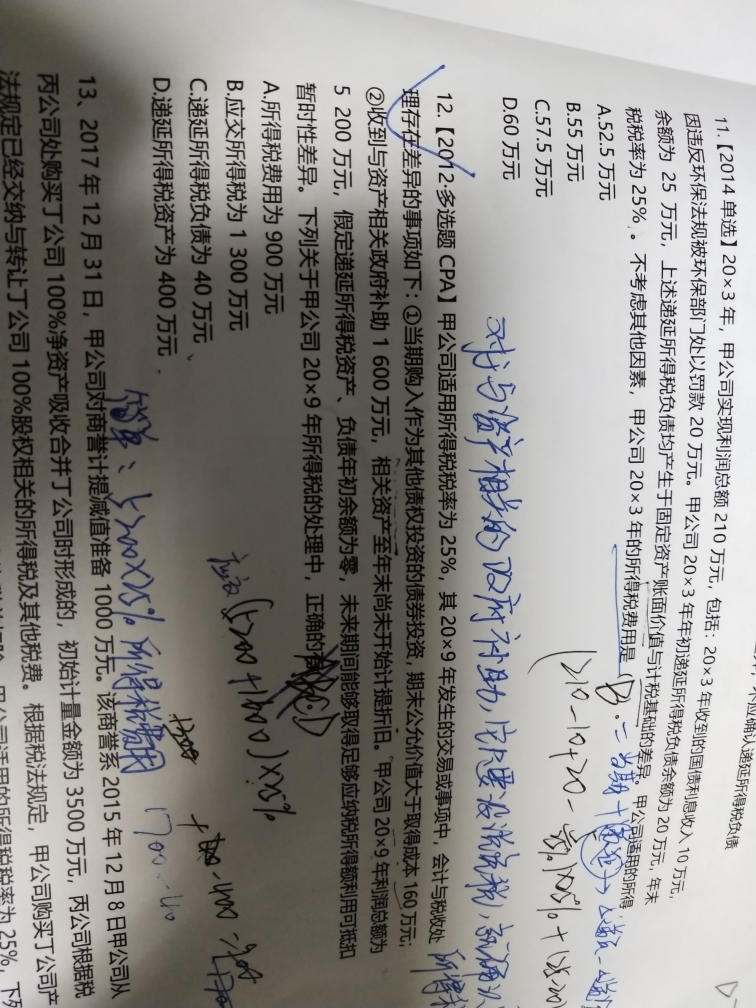 不应确认递延所得税负债
11.【2014 单选】20×3 年，甲公司实现利润总额 210 万元，包括：20×3 年收到的国债利息收入 10 万元，
因违反环保法规被环保部门处以罚款 20 万元。甲公司 20×3 年年初递延所得税负债余额为 20 万元，年末
余额为 25 万元，上述递延所得税负债均产生于固定资产账面价值与计税基础的差异。甲公司适用的所得
税税率为 25%。不考虑其他因素，甲公司 20×3 年的所得税费用是（B.
= 当期+递延
A.52.5 万元
B.55 万元
C.57.5 万元
D.60 万元
对于与资产相关的政府补助,
12.【2012·多选题 CPA】甲公司适用所得税税率为 25%，其 20×9 年发生的交易或事项中，会计与税收处
理存在差异的事项如下：①当期购入作为其他债权投资的债券投资，期末公允价值大于取得成本 160 万元；
②收到与资产相关政府补助 1 600 万元，相关资产至年末尚未开始计提折旧。甲公司 20×9 年利润总额为
5 200 万元，假定递延所得税资产、负债年初余额为零，未来期间能够取得足够应纳税所得额利用可抵扣
暂时性差异。下列关于甲公司 20×9 年所得税的处理中，正确的有
A.所得税费用为 900 万元
B.应交所得税为 1 300 万元
C.递延所得税负债为 40 万元、
D.递延所得税资产为 400 万元、
应交 (5200+1600)×25%
简单：5200×25% 所得税费用
1300
1700-40
13、2017 年 12 月 31 日，甲公司对商誉计提减值准备 1000 万元。该商誉系 2015 年 12 月 8 日甲公司从
丙公司处购买丁公司 100%净资产吸收合并丁公司时形成的，初始计量金额为 3500 万元，丙公司根据税
法规定已经交纳与转让丁公司 100%股权相关的所得税及其他税费。根据税法规定，甲公司购买丁公司产
甲公司适用的所得税税率为 25%，下列